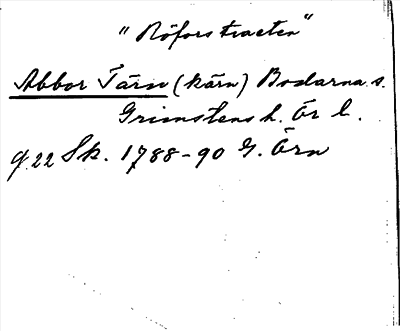 "Röforstracten"
Abbor Tärn (kärn) Bodarna s.
Grimstens h. Ör l.
q 22 Sk. 1788-90 G. Örn